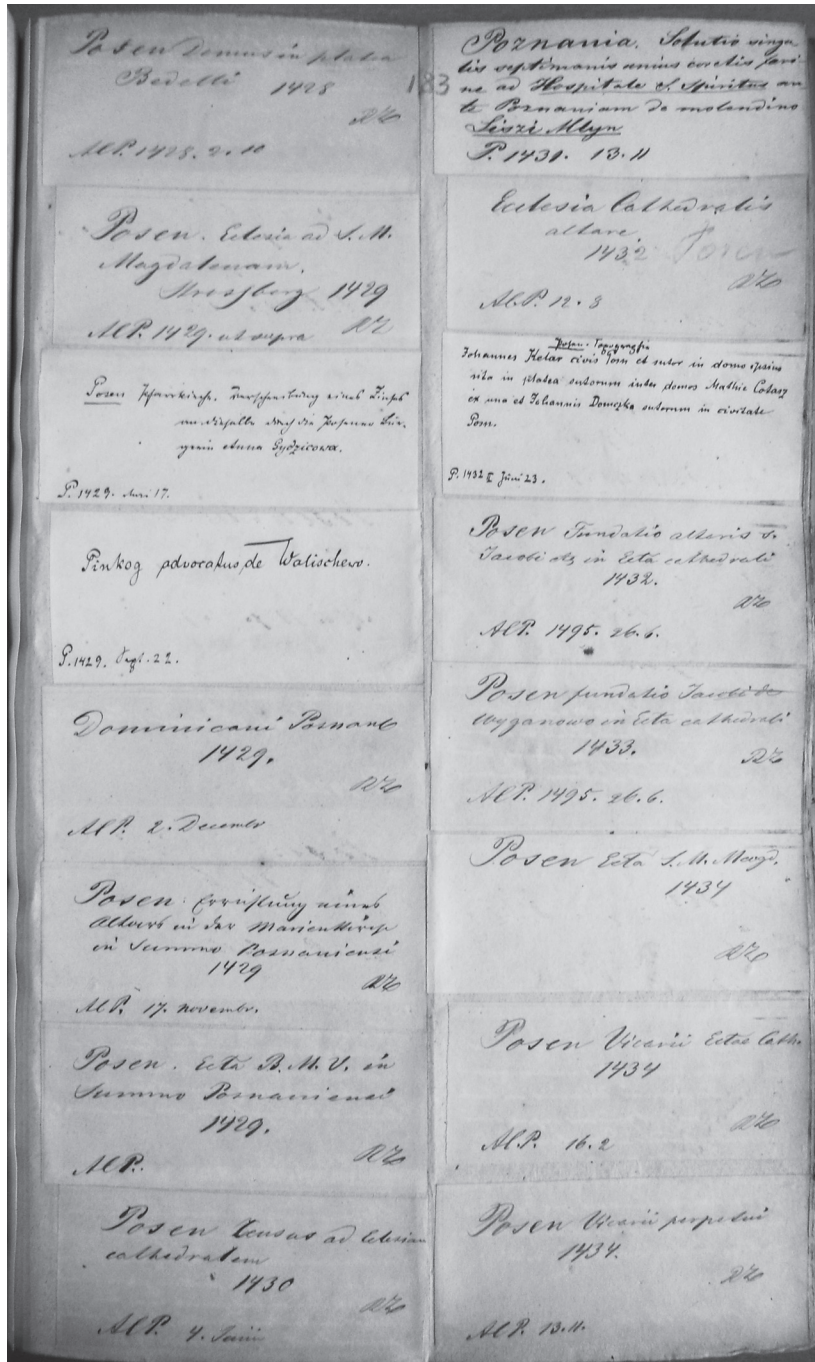 Posen Domus in platea
Bedelli 1428
AlP. 1428. 2. 10
Posen. Eclesia ad S. M.
Magdalenam.
1429
AlP. 1429. ut supra
Posen Pfarrkirche. Verschreibung eines Zinses
an dieselbe durch die Posener Bür-
gerin Anna
P. 1429. 17.
Pinkog advocatus de Walischewo.
P. 1429. Sept. 22.
Dominicani Posnan
1429.
AlP. 2. Decembr
Posen: Errichtung eines
Altars in der Marienkirche
in Summo Posnaniensi
1429
AlP. 17. Novembr.
Posen. Ecta B. M. V. in
Summo Posnaniensi
1429.
AlP.
Posen Census ad Eclesiam
cathedralem
1430
AlP. 4. Junii
183
Poznania. Solutio singu
lis septimanis unius coretis fari
ne ad Hospitale S. Spiritus an
te Poznaniam de molendino
Liszi Młyn
P. 1431. 13. 11
Ecclesia Cathedralis
altare
1432 Posen
AlP. 12. 8
Posen. Topografie
Johannes Kelar civis Posn et sutor in domo ipsius
sita in platea sutorum inter domos Mathie
ex una et Johannis sutorum in civitate
Posn.
P. 1432 Juni 23.
Posen Fundatio altaris s.
Jacobi in Ecta cathedrali
1432.
AlP. 1495. 26. 6.
Posen fundatio Jacobi de
Wyganowo in Ecta cathedrali
1433.
AlP. 1495. 26. 6.
Posen Ecta S. M. Magd.
1434
Posen Vicarii Ectae Cath.
1434
AlP. 16. 2
Posen Vicarii perpetui
1434.
AlP. 13. 11.